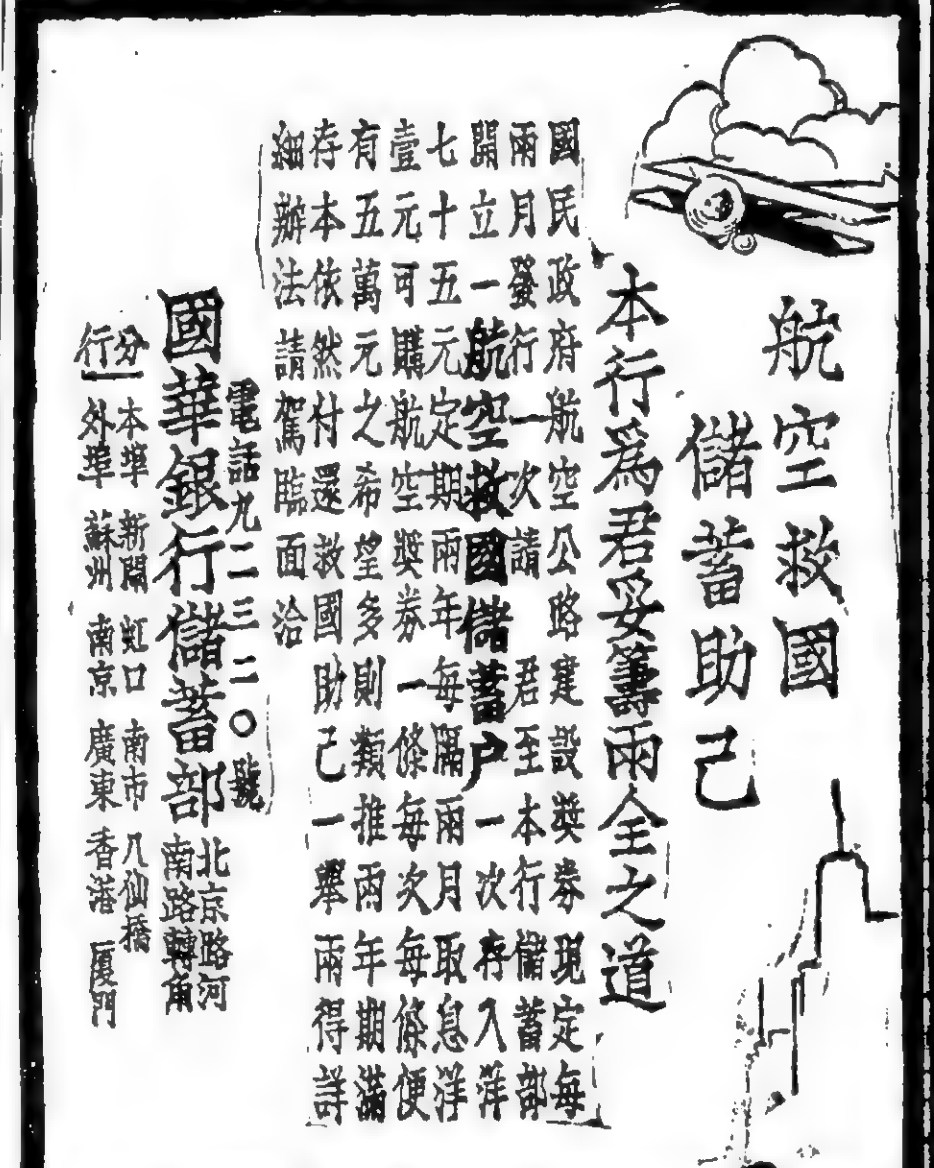 航空救國
儲蓄助己
本行爲君妥籌兩全之道
國民政府航空公路建設獎券現定每
兩月發行一次請君至本行儲蓄部
開立一航空救國儲蓄户一次存入洋
七十五元定期兩年每隔兩月取息洋
壹元可購航空獎券一條每次每條便
有五萬元之希望多則類推兩年期滿
存本依然付還救國助己一舉兩得詳
細辦法請駕臨面洽
電話九二三二〇號
國華銀行儲蓄部
北京路河
南路轉角
分行
本埠 新閘 虹口 南市 八仙橋
外埠 蘇州 南京 廣東 香港 厦門